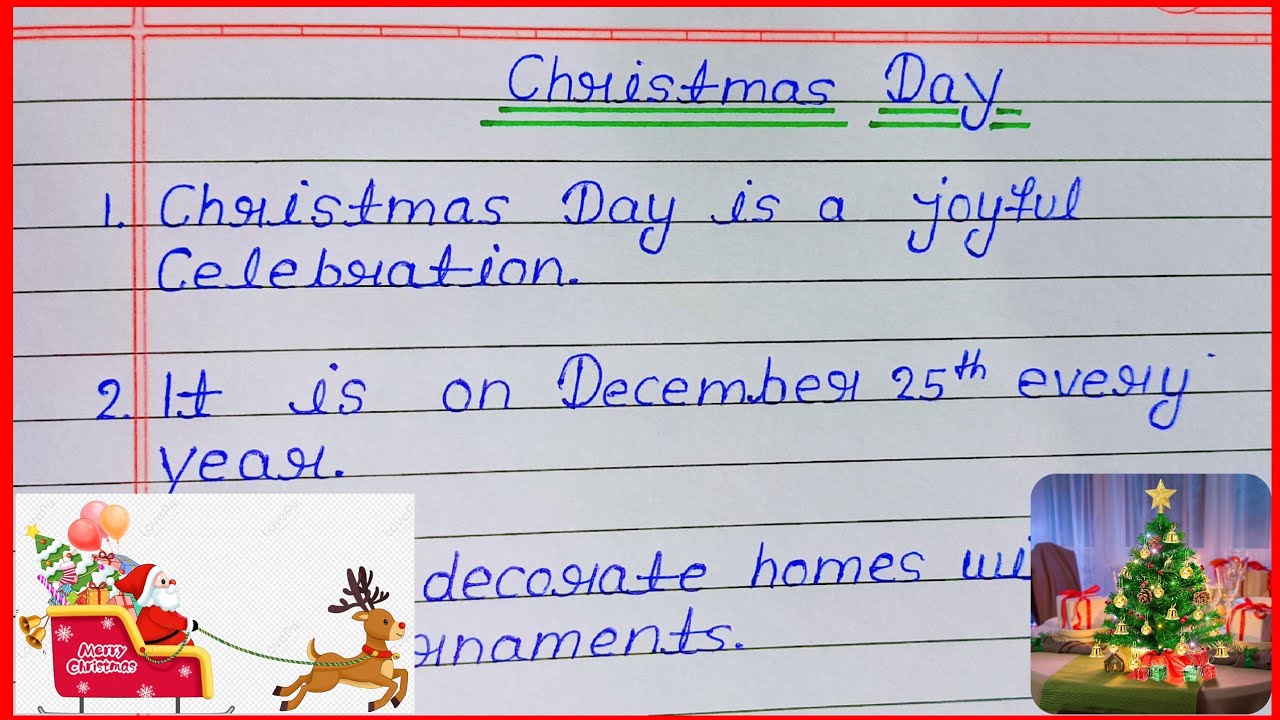 Christmas Day
1. Christmas Day is a joyful
Celebration.
2. It is on December 25th every
year.
decorate homes
rnaments.
Merry
Christmas